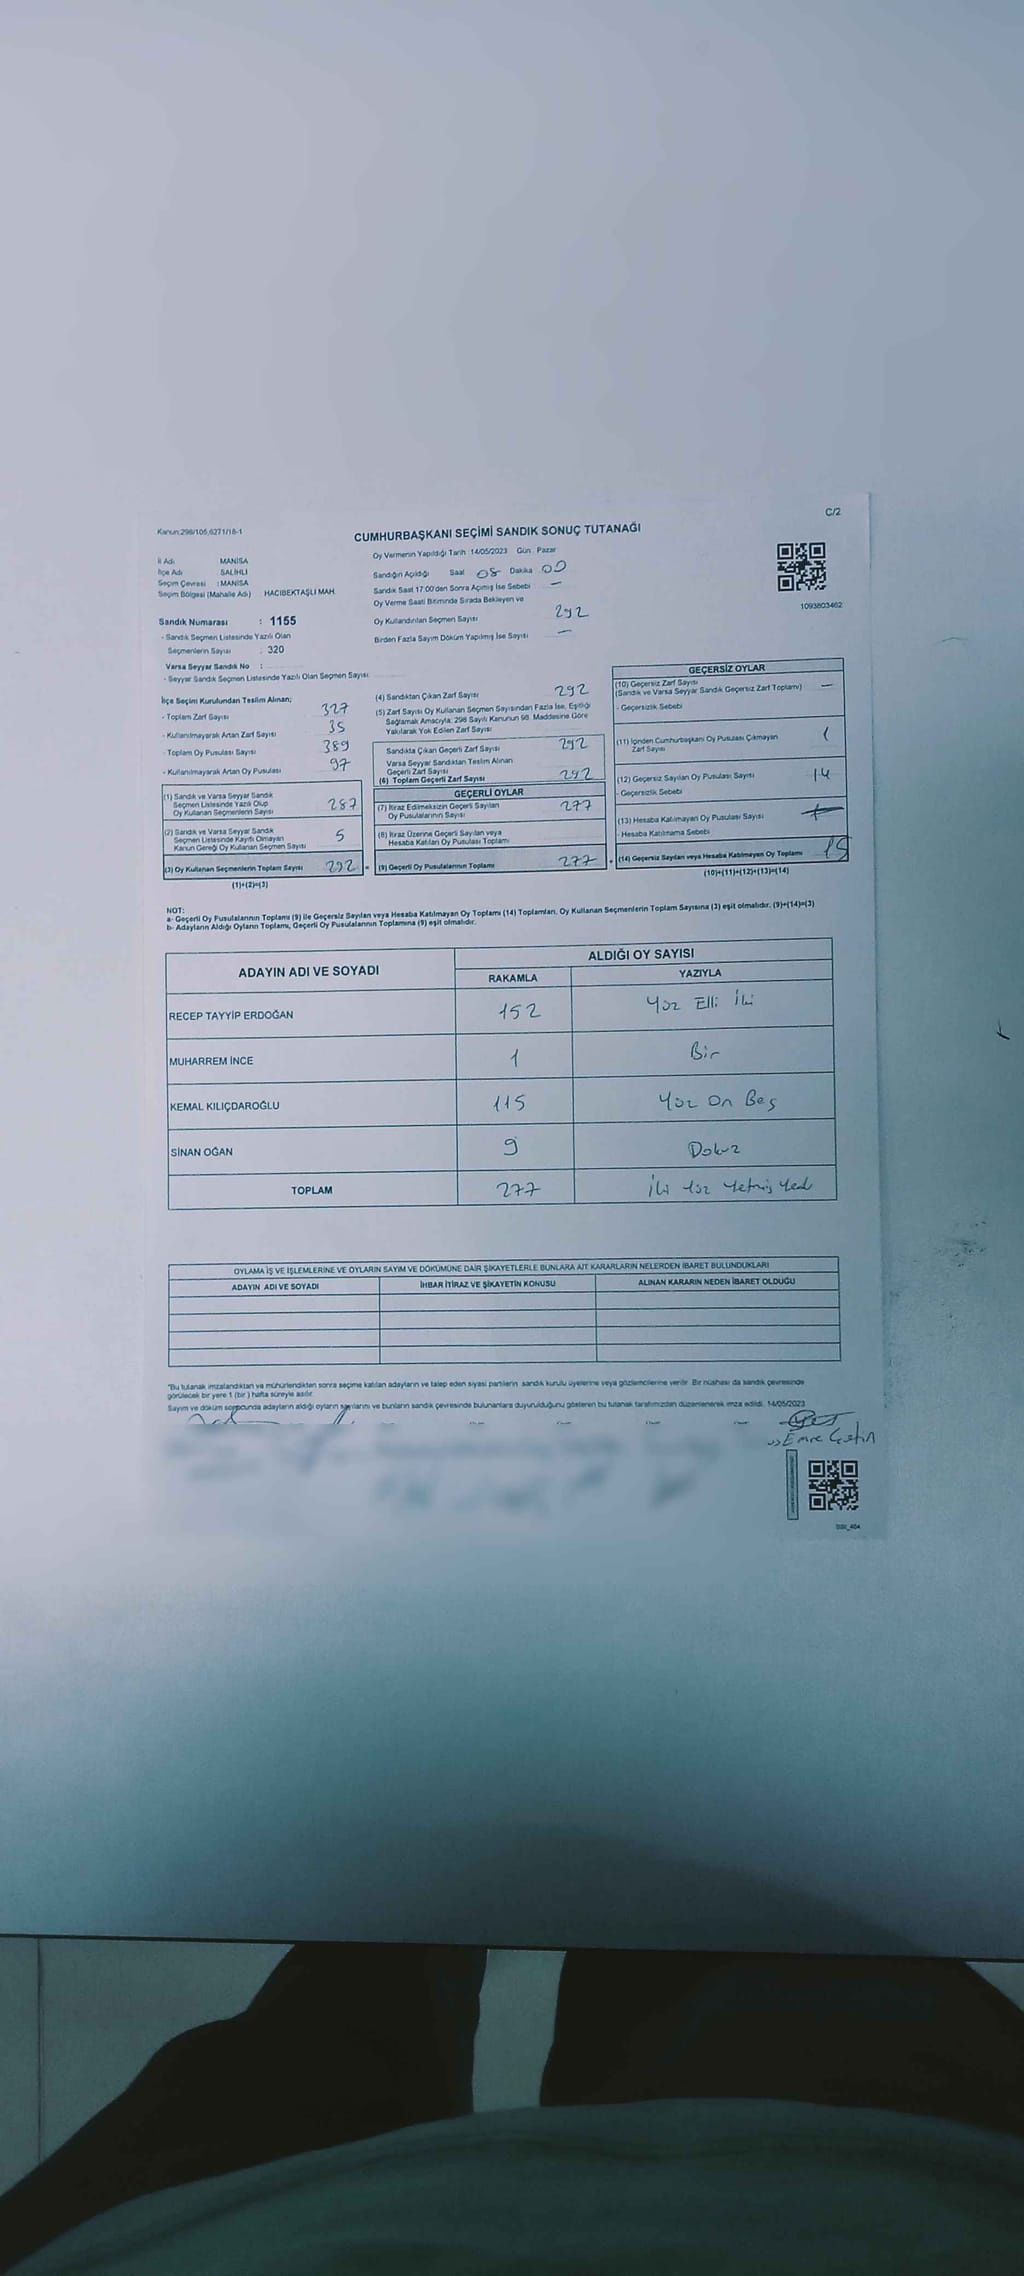 C/2
Kanun:298/105,6271/16-1
CUMHURBAŞKANI SEÇİMİ SANDIK SONUÇ TUTANAĞI
İl Adı MANİSA
İlçe Adı SALİHLİ
Seçim Çevresi : MANİSA
Seçim Bölgesi (Mahalle Adı) HACIBEKTAŞLI MAH.
Sandık Numarası : 1155
- Sandık Seçmen Listesinde Yazılı Olan
Seçmenlerin Sayısı : 320
Varsa Seyyar Sandık No :
- Seyyar Sandık Seçmen Listesinde Yazılı Olan Seçmen Sayısı:
Oy Vermenin Yapıldığı Tarih :14/05/2023 Gün : Pazar
Sandığın Açıldığı Saat 08 Dakika 00
Sandık Saat 17:00'den Sonra Açılmış İse Sebebi : —
Oy Verme Saati Bitiminde Sırada Bekleyen ve
Oy Kullandırılan Seçmen Sayısı 292
Birden Fazla Sayım Döküm Yapılmış İse Sayısı —
1093803462
İlçe Seçim Kurulundan Teslim Alınan;
- Toplam Zarf Sayısı 327
- Kullanılmayarak Artan Zarf Sayısı 35
- Toplam Oy Pusulası Sayısı 389
- Kullanılmayarak Artan Oy Pusulası 97
(1) Sandık ve Varsa Seyyar Sandık
Seçmen Listesinde Yazılı Olup
Oy Kullanan Seçmenlerin Sayısı 287
(2) Sandık ve Varsa Seyyar Sandık
Seçmen Listesinde Kayıtlı Olmayan
Kanun Gereği Oy Kullanan Seçmen Sayısı 5
(3) Oy Kullanan Seçmenlerin Toplam Sayısı 292 =
(1)+(2)=(3)
(4) Sandıktan Çıkan Zarf Sayısı 292
(5) Zarf Sayısı Oy Kullanan Seçmen Sayısından Fazla İse, Eşitliği
Sağlamak Amacıyla; 298 Sayılı Kanunun 98. Maddesine Göre
Yakılarak Yok Edilen Zarf Sayısı
Sandıkta Çıkan Geçerli Zarf Sayısı 292
Varsa Seyyar Sandıktan Teslim Alınan
Geçerli Zarf Sayısı
(6) Toplam Geçerli Zarf Sayısı 292
GEÇERLİ OYLAR
(7) İtiraz Edilmeksizin Geçerli Sayılan
Oy Pusulalarının Sayısı 277
(8) İtiraz Üzerine Geçerli Sayılan veya
Hesaba Katılan Oy Pusulası Toplamı
(9) Geçerli Oy Pusulalarının Toplamı 277 +
GEÇERSİZ OYLAR
(10) Geçersiz Zarf Sayısı
(Sandık ve Varsa Seyyar Sandık Geçersiz Zarf Toplamı) —
- Geçersizlik Sebebi
(11) İçinden Cumhurbaşkanı Oy Pusulası Çıkmayan
Zarf Sayısı 1
(12) Geçersiz Sayılan Oy Pusulası Sayısı 14
- Geçersizlik Sebebi
(13) Hesaba Katılmayan Oy Pusulası Sayısı
- Hesaba Katılmama Sebebi
(14) Geçersiz Sayılan veya Hesaba Katılmayan Oy Toplamı 15
(10)+(11)+(12)+(13)=(14)
NOT:
a- Geçerli Oy Pusulalarının Toplamı (9) ile Geçersiz Sayılan veya Hesaba Katılmayan Oy Toplamı (14) Toplamları, Oy Kullanan Seçmenlerin Toplam Sayısına (3) eşit olmalıdır. (9)+(14)=(3)
b- Adayların Aldığı Oyların Toplamı, Geçerli Oy Pusulalarının Toplamına (9) eşit olmalıdır.
ADAYIN ADI VE SOYADI ALDIĞI OY SAYISI
RAKAMLA YAZIYLA
RECEP TAYYİP ERDOĞAN 152 Yüz Elli İki
MUHARREM İNCE 1 Bir
KEMAL KILIÇDAROĞLU 115 Yüz On Beş
SİNAN OĞAN 9 Dokuz
TOPLAM 277 İki Yüz Yetmiş Yedi
OYLAMA İŞ VE İŞLEMLERİNE VE OYLARIN SAYIM VE DÖKÜMÜNE DAİR ŞİKAYETLERLE BUNLARA AİT KARARLARIN NELERDEN İBARET BULUNDUKLARI
ADAYIN ADI VE SOYADI İHBAR İTİRAZ VE ŞİKAYETİN KONUSU ALINAN KARARIN NEDEN İBARET OLDUĞU
*Bu tutanak imzalandıktan ve mühürlendikten sonra seçime katılan adayların ve talep eden siyasi partilerin sandık kurulu üyelerine veya gözlemcilerine verilir. Bir nüshası da sandık çevresinde
görülecek bir yere 1 (bir) hafta süreyle asılır.
Sayım ve döküm sonucunda adayların aldığı oyların sayılarını ve bunların sandık çevresinde bulunanlara duyurulduğunu gösteren bu tutanak tarafımızdan düzenlenerek imza edildi. 14/05/2023
Emre Çetin